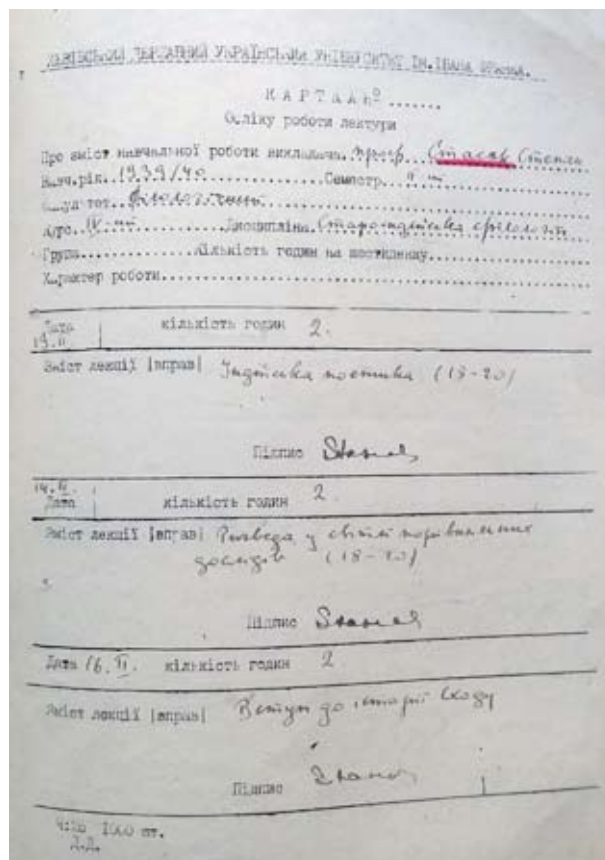 ЛЬВІВСЬКИЙ ДЕРЖАВНИЙ УКРАЇНСЬКИЙ УНІВЕРСИТЕТ ІМ. ІВАНА ФРАНКА.
КАРТА №.......
Обліку роботи лектури
Про зміст навчальної роботи викладача. проф. Стасяк Стефан
Навч.рік. 1939/40 ..........Семестр. II
Факультет. Філологічний
Курс. IV ..........Дисципліна. Староіндійська філологія
Група.............Кількість годин на шестиденку............
Характер роботи............
Дата 13.II кількість годин 2.
Зміст лекції |вправ| Індійська поетика (18-20)
Підпис Stasiak
14.II. Дата кількість годин 2.
Зміст лекції |вправ| Ригведа у світлі порівняльних
дослідів (18-20)
Підпис Stasiak
Дата 16.II. кількість годин 2
Зміст лекції |вправ| Вступ до історії Сходу
Підпис Stasiak
1000 шт.